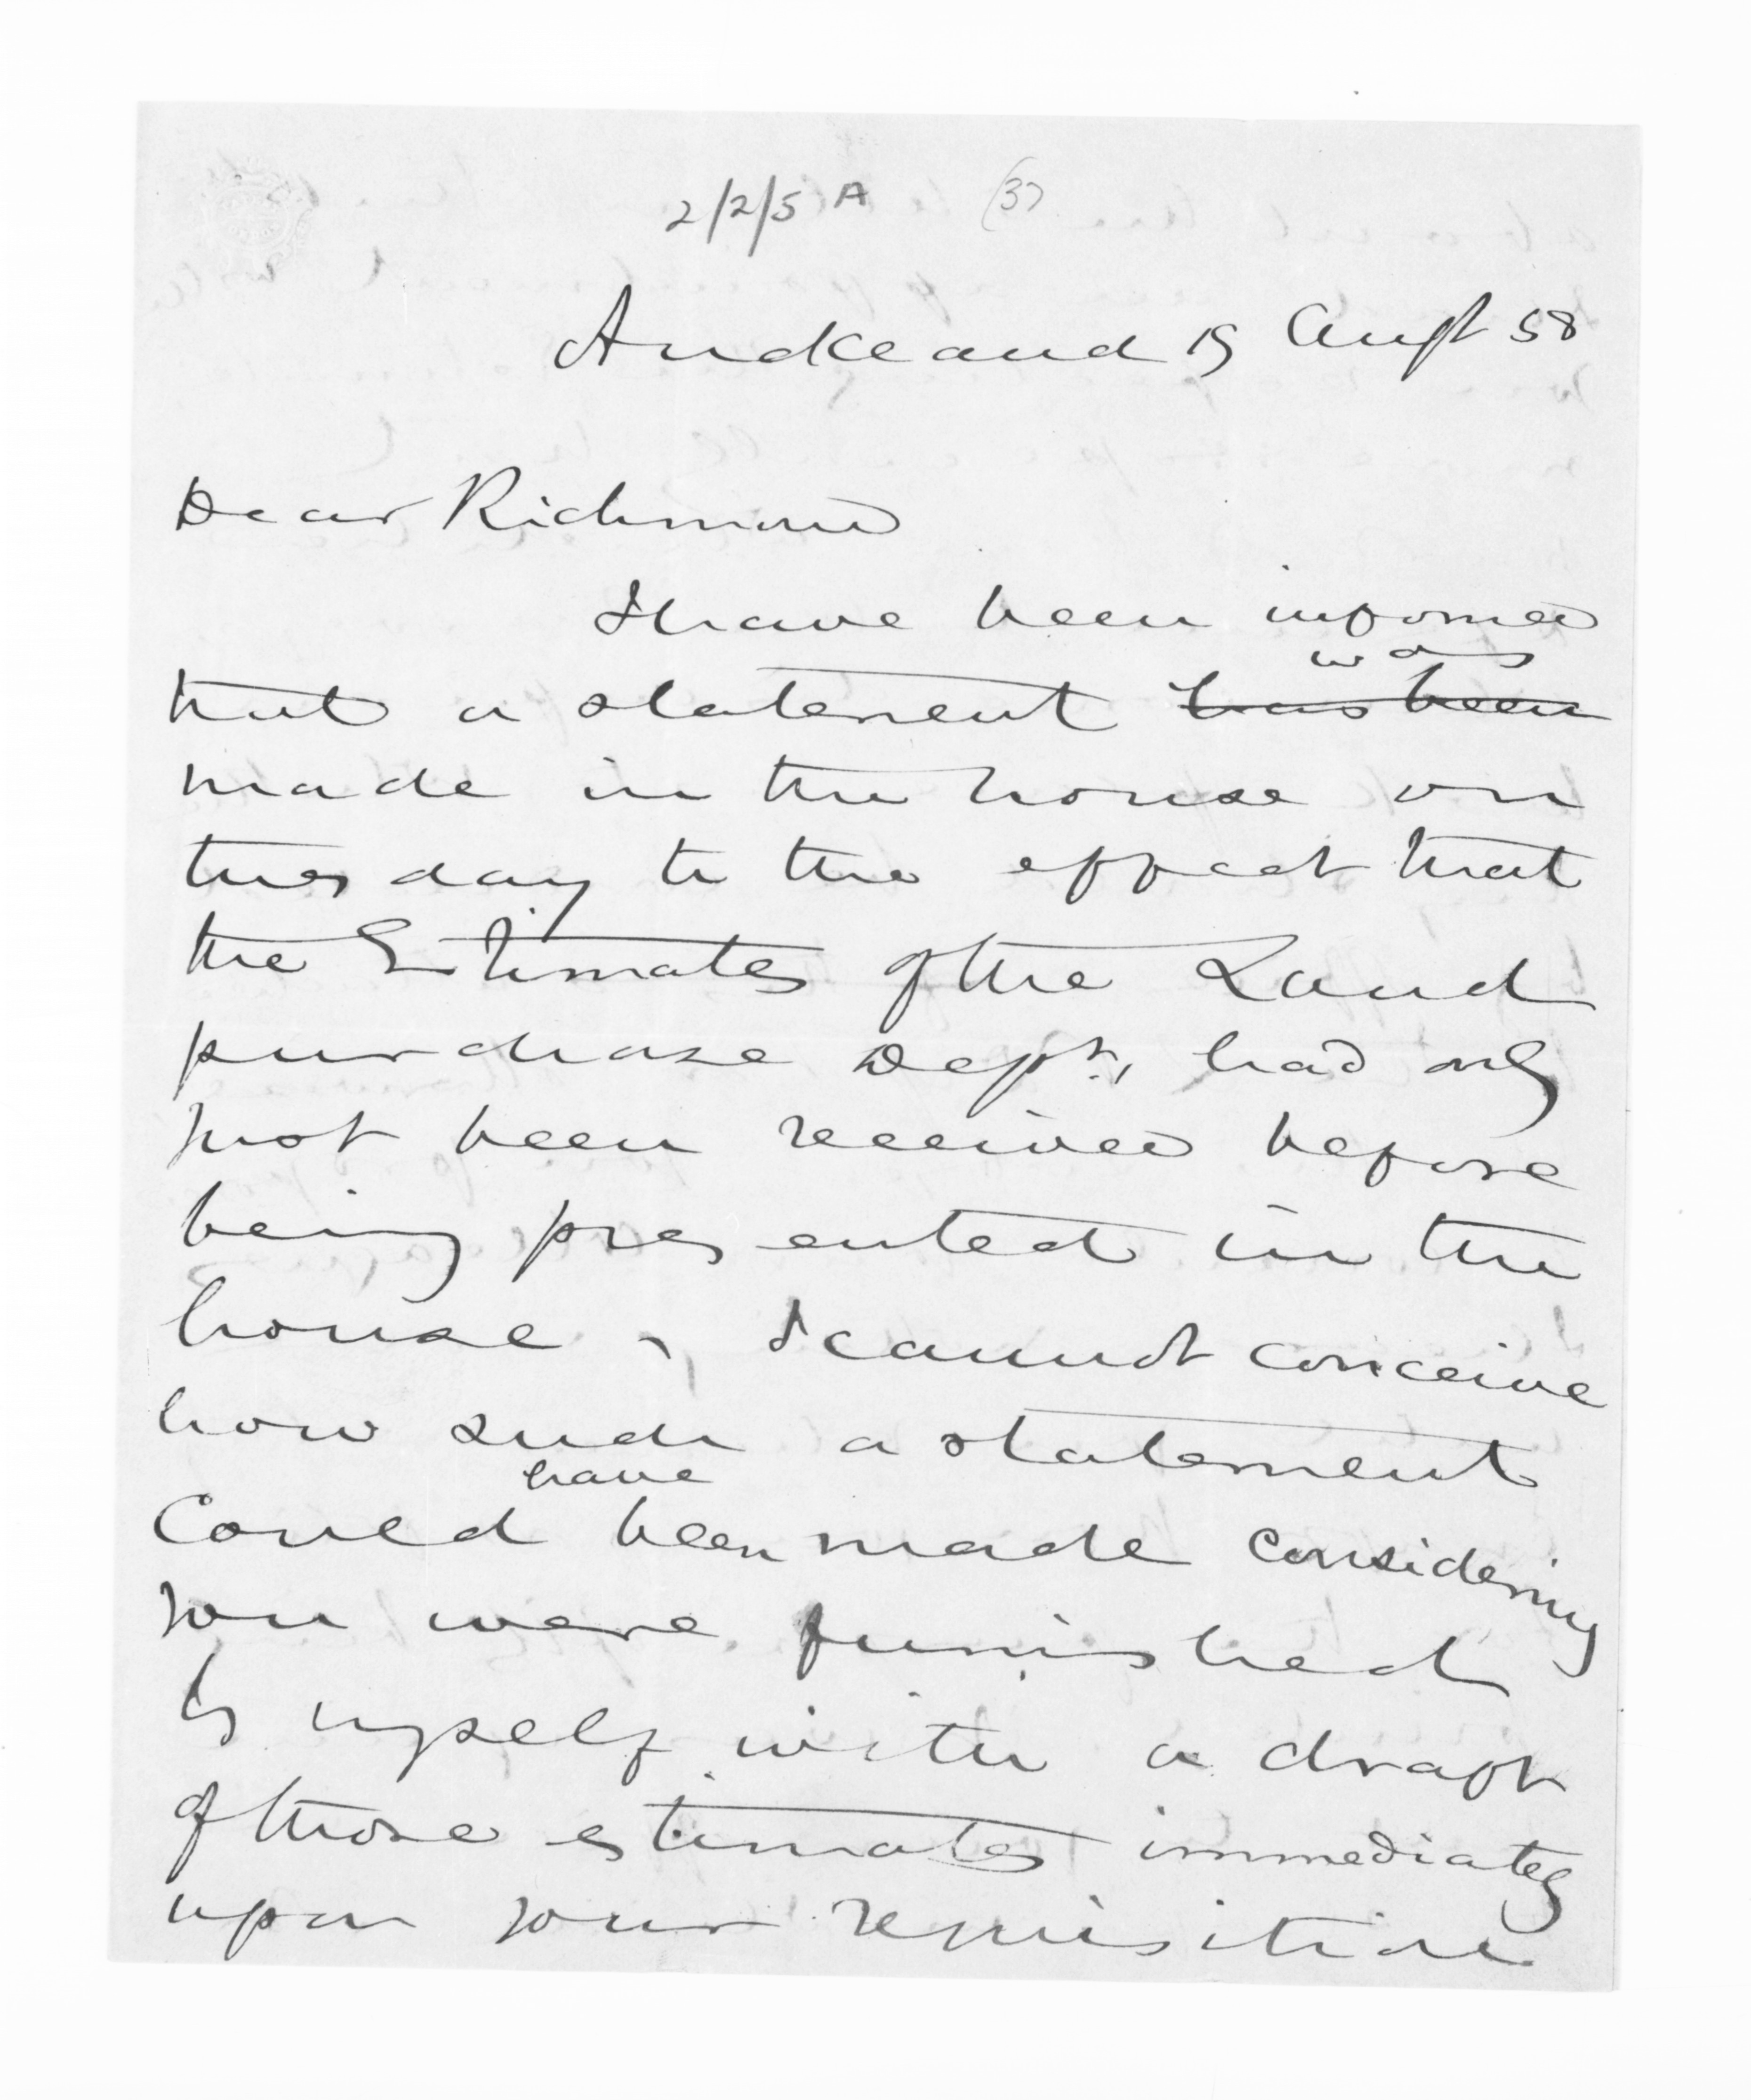 2/2/5 A (37
Auckland 19 Augt 58
Dear Richmond
I have been informed
was
that a statement has been
made in the house on
tuesday to the effect that
the Estimates of the Land
purchase Dept., had only
just been received before
being presented in the
house, I cannot conceive
how such a statement
have
Could been made considering
you were furnished
by myself with a draft
of those estimates immediately
upon your requisition